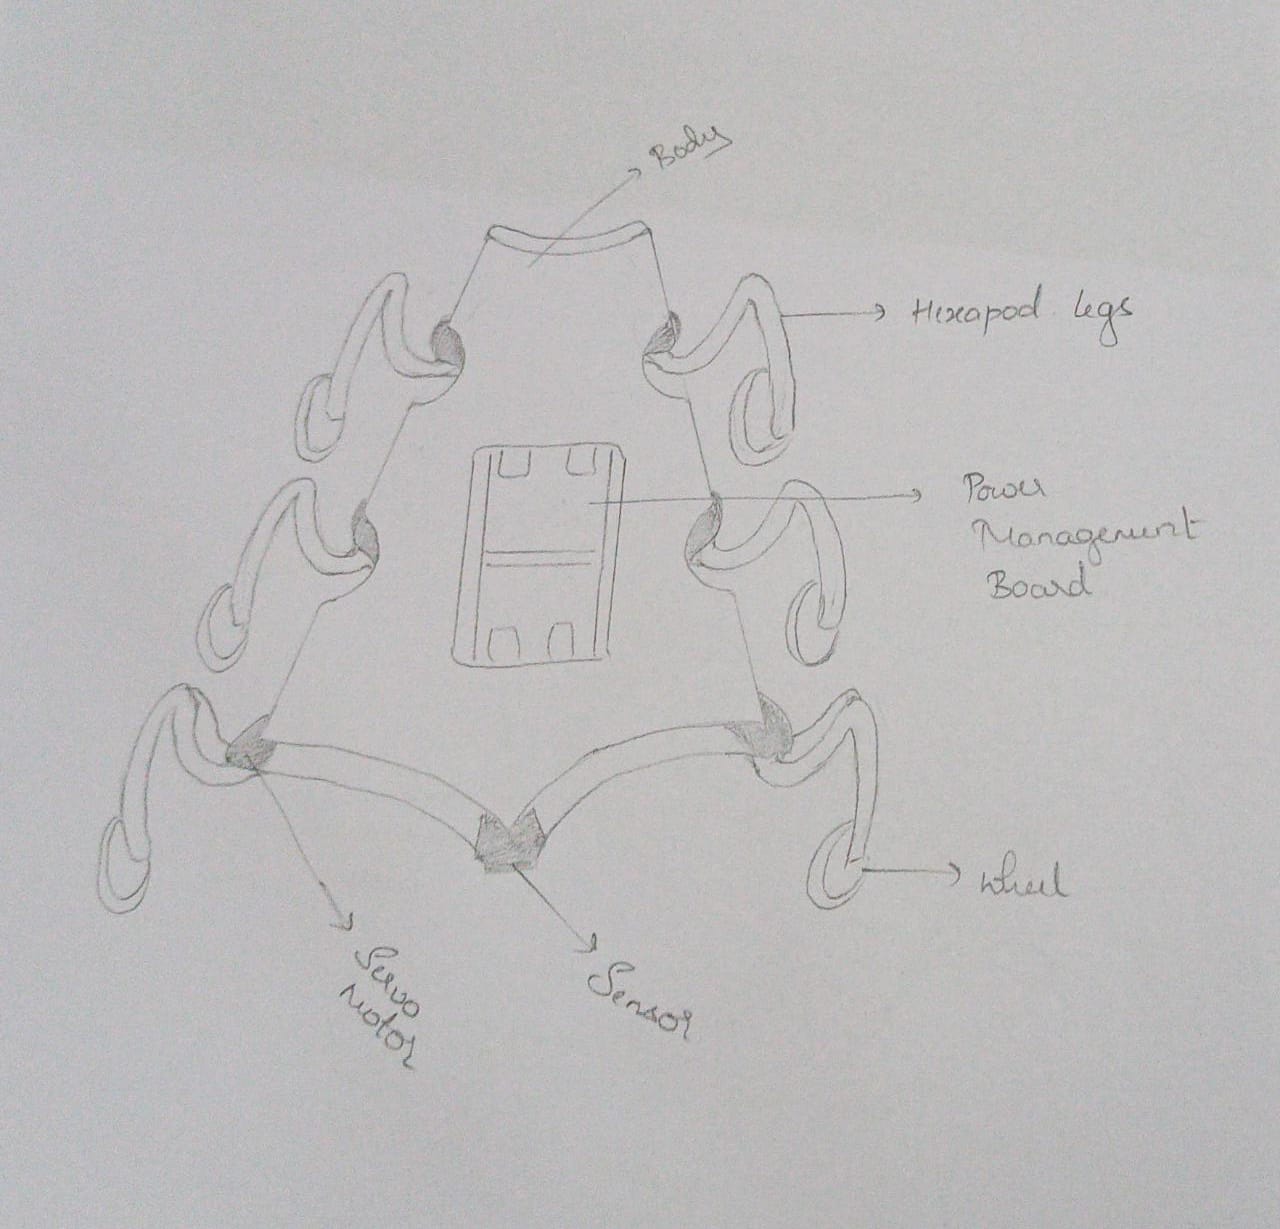 Body
Hexapod legs
Power
Management
Board
Wheel
Sensor
Servo
Motor